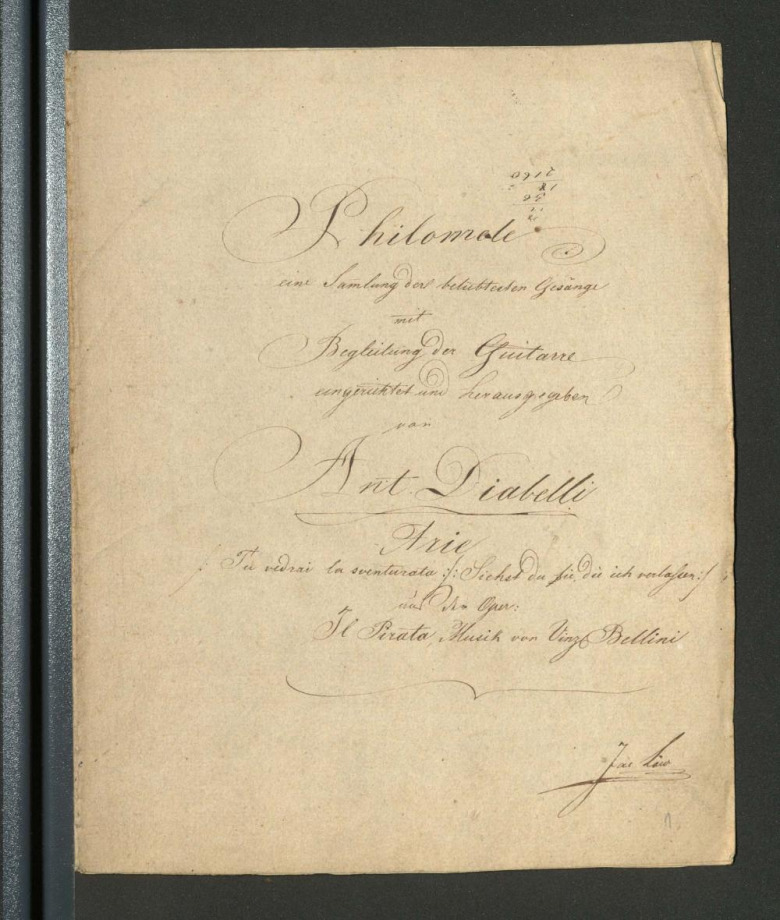 Philomele
eine Samlung der beliebtesten Gesänge
mit
Begleitung der Guitarre
eingerichtet und herausgegeben
von
Ant. Diabelli
Arie
/: Tu vedrai la sventurata :/: Siehst du sie, die ich verlassen :/
aus der Oper:
Il Pirata, Musik von Vinz Bellini
Löw
1.